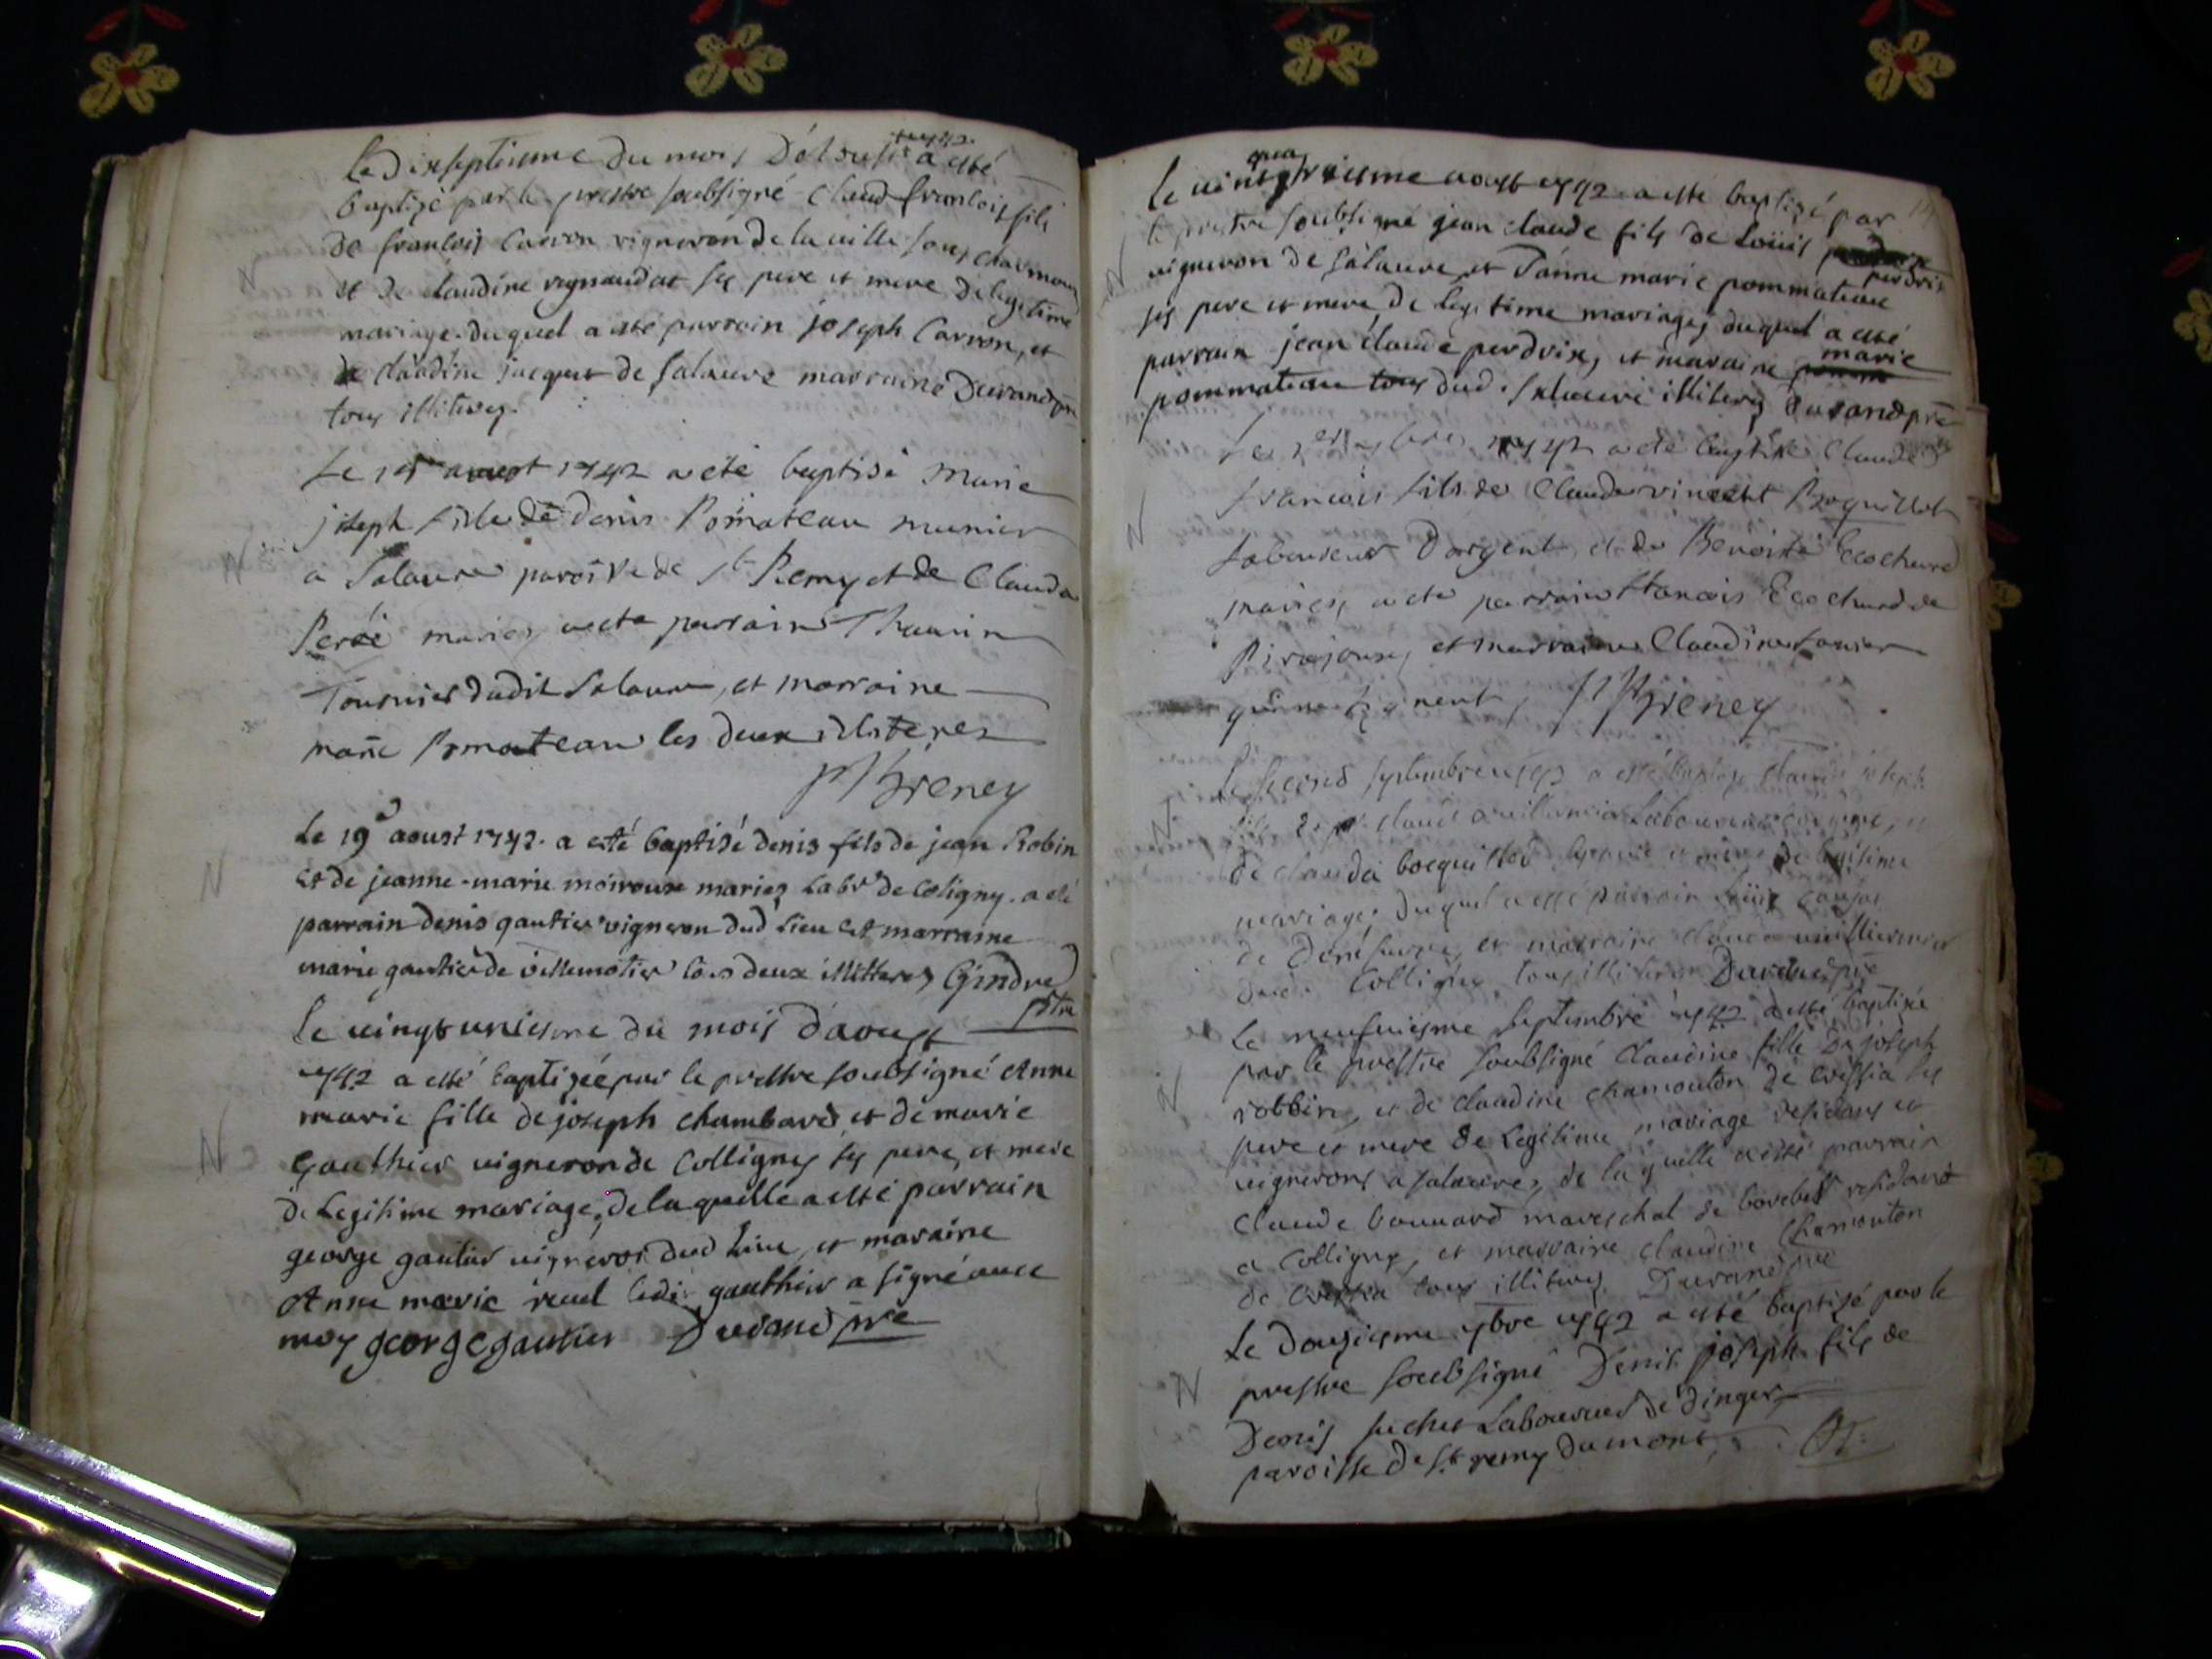 Le Dixseptieme du mois D'aoust 1742 a esté
baptizé par le prestre soubsigné Claud francois fils
de francois Carron vigneron de la ville sous charmoux
et de claudine regnaudat ses pere et mere de legitime
mariage. duquel a esté parrain joseph Carron, et
claudine jacquet de salaure marraine Durand pre
tous illiteres.
Le 19 aoust 1742 a été baptisé marie
joseph fille de denis Pomateau munier
a Salavre paroisse de St Remy et de Clauda
mariez a été parrain Thaurin
Tournier dudit Salavre, et marraine
marie Pomateau les deux illiteres
Breney
Le 19e aoust 1742. a esté baptisé denis fils de jean Robin
et de jeanne-marie moiroux mariez labr de Coligny. a été
parrain denis gautier vigneron dud lieu et marraine
marie gautier de villemotier tous deux illitteres Gindre
ptre
le vingt uniesme du mois d'aoust
1742 a esté baptizée par le prestre soubsigné Anne
marie fille de joseph chambard et de marie
Gauthier vigneron de Colligny ses pere, et mere
de Legitime mariage, de laquelle a esté parrain
george gautier vigneron dud lieu, et maraine
Anne marie ledit gauthier a signé avec
moy george gautier Durand pre
le vingt quatriesme aoust 1742 a esté baptizé par
le prestre soubsigné jean claude fils de Loüis perdrix
vigneron de salavre, et d'anne marie pommateau
ses pere et mere de legitime mariage, duquel a esté
parrain jean claude perdrix, et maraine marie
pommateau dud. salavre illiteres Durand pre
Le 7bre 1742 a été baptisé Claude
francois fils de Claude vincent Boquillot
Laboureur D'argent, et de Benoite Ecochard
mariez, a été parrain francois Ecochard de
Pirajoux, et marraine Claudine
qui ne signent, Breney
Le second septembre 1742 a esté baptizé claude joseph
fils de claude vuillermier Laboureur
de clauda bocquillod ses pere et mere de legitime
mariage, duquel a esté parrain Loüis
de et marraine clauda vuillermier
dud. Colligny, tous illiteres Durand pre
Le neufviesme septembre 1742 a esté baptizée
par le prestre soubsigné Claudine fille de joseph
robbin, et de claudine chamouton de cressia ses
pere et mere de Legitime mariage residans et
vignerons a salavre, de laquelle a esté parrain
Claude bouvard mareschal de residant
a Colligny, et marraine claudine Chamouton
de Cressia tous illiteres. Durand pre
Le Douziesme 7bre 1742 a esté baptizé par le
prestre soubsigné Denis joseph fils de
Denis suchet Laboureur de dingier
paroisse de St remy du mont,